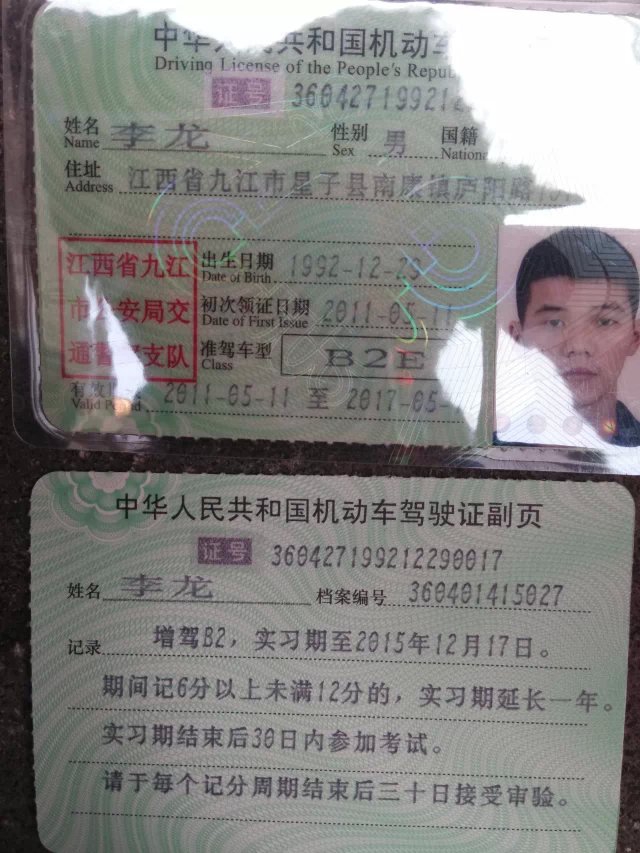 中华人民共和国机动车
Driving License of the People's Repu
证号 36042719921
姓名 李龙 性别 男 国籍
Name Sex Nationa
住址 江西省九江市星子县南康镇庐阳路
Address
江西省九江 出生日期 1992-12-29
Date of Birth
市公安局交 初次领证日期 2011-05-11
Date of First Issue
通警察支队 准驾车型 B2E
Class
有效期 2011-05-11 至 2017-05-
Valid Period
中华人民共和国机动车驾驶证副页
证号 360427199212290017
姓名 李龙 档案编号 360401415027
记录 增驾B2，实习期至2015年12月17日。
期间记6分以上未满12分的，实习期延长一年。
实习期结束后30日内参加考试。
请于每个记分周期结束后三十日接受审验。